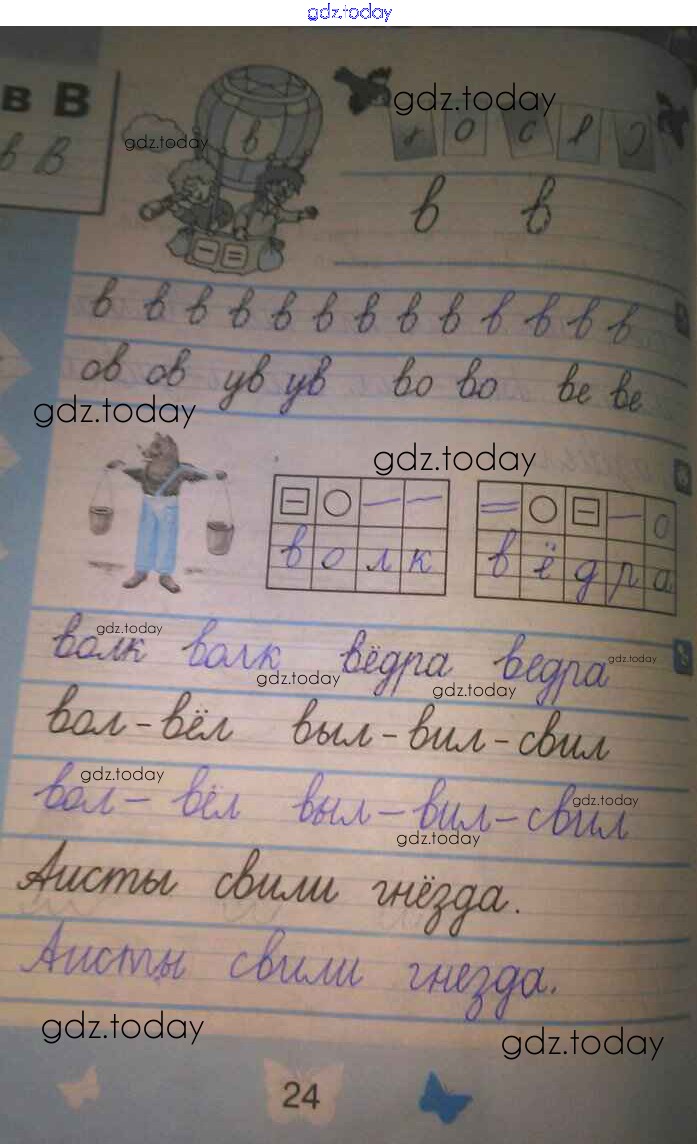 gdz.today
в В
gdz.today
в В
gdz.today
в
о с
в в
в в в в в в в в в в в в в
ов ов ув ув во во ве ве
gdz.today
gdz.today
в о л к
в ё д р а
gdz.today
волк волк вёдра ведра
gdz.today gdz.today gdz.today
вол - вёл выл - вил - свил
gdz.today
вол - вёл выл - вил - свил
gdz.today
gdz.today
Аисты свили гнёзда.
Аисты свили гнезда.
gdz.today
gdz.today
24